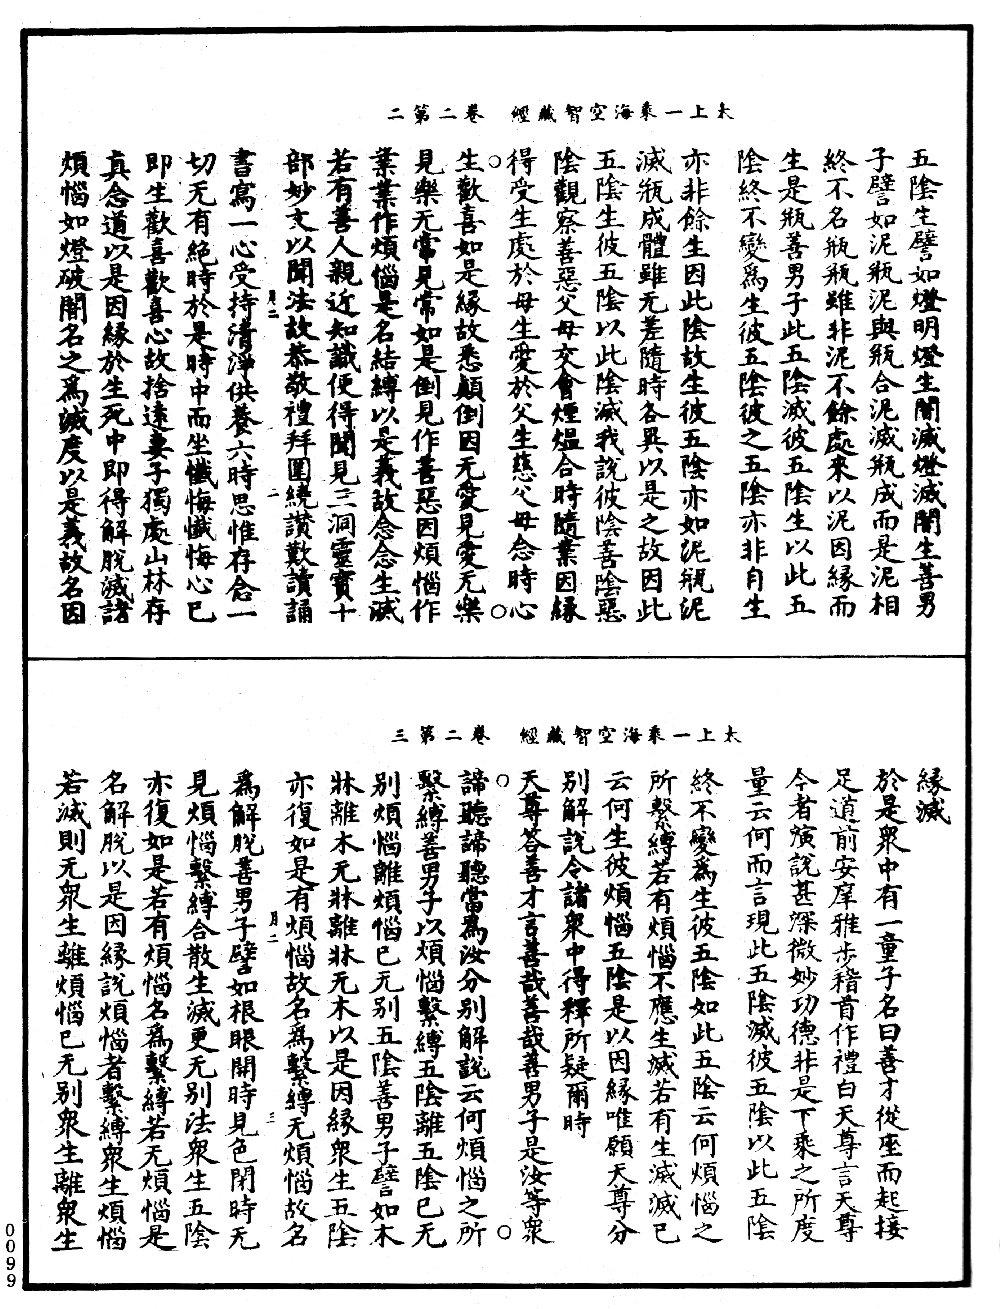 太上一乘海空智藏經　卷二第二
五陰生譬如燈明燈生闇滅燈滅闇生善男
子譬如泥瓶泥與瓶合泥滅瓶成而是泥相
終不名瓶瓶雖非泥不餘處來以泥因緣而
生是瓶善男子此五陰滅彼五陰生以此五
陰終不變為生彼五陰彼之五陰亦非自生
亦非餘生因此陰故生彼五陰亦如泥瓶泥
滅瓶成體雖无差隨時各異以是之故因此
五陰生彼五陰以此陰滅我說彼陰善陰惡
陰觀察善惡父母交會煙熅合時隨業因緣
得受生處於母生愛於父生慈父母念時心
生歡喜如是緣故悉顛倒因无愛見愛无樂
見樂无常見常如是倒見作善惡因煩惱作
業業作煩惱是名結縛以是義故念念生滅
若有善人親近知識便得聞見三洞靈寶十
部妙文以聞法故恭敬禮拜圍繞讚歎讀誦
月二
二
書寫一心受持清淨供養六時思惟存念一
切无有絕時於是時中而坐懺悔懺悔心已
即生歡喜歡喜心故捨遠妻子獨處山林存
真念道以是因緣於生死中即得解脫滅諸
煩惱如燈破闇名之為滅度以是義故名因
太上一乘海空智藏經　卷二第三
緣滅
於是眾中有一童子名曰善才從座而起接
足道前安摩雅步稽首作禮白天尊言天尊
今者演說甚深微妙功德非是下乘之所度
量云何而言現此五陰滅彼五陰以此五陰
終不變為生彼五陰如此五陰云何煩惱之
所繫縛若有煩惱不應生滅若有生滅滅已
云何生彼煩惱五陰是以因緣唯願天尊分
別解說令諸眾中得釋所疑爾時
天尊答善才言善哉善哉善男子是汝等眾
諦聽諦聽當為汝分別解說云何煩惱之所
繫縛善男子以煩惱繫縛五陰離五陰已无
別煩惱離煩惱已无別五陰善男子譬如木
牀離木无牀離牀无木以是因緣眾生五陰
亦復如是有煩惱故名為繫縛无煩惱故名
月二
三
為解脫善男子譬如根眼開時見色閉時无
見煩惱繫縛合散生滅更无別法眾生五陰
亦復如是若有煩惱名為繫縛若无煩惱是
名解脫以是因緣說煩惱者繫縛眾生煩惱
若滅則无眾生離煩惱已无別眾生離眾生
0099